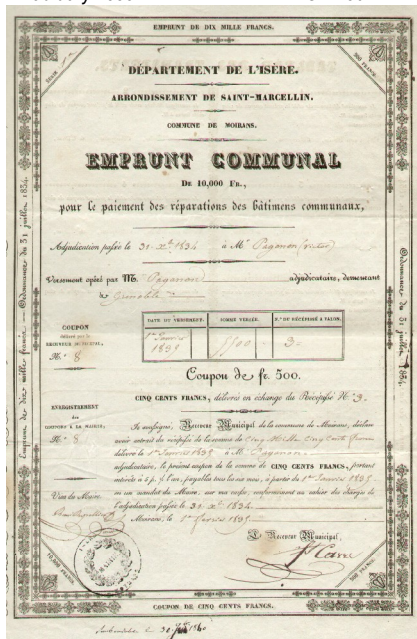 EMPRUNT DE DIX MILLE FRANCS.
500 FRANCS.
DÉPARTEMENT DE L'ISÈRE.
ARRONDISSEMENT DE SAINT-MARCELLIN.
COMMUNE DE MOIRANS.
EMPRUNT COMMUNAL
DE 10,000 FR.,
pour le paiement des réparations des bâtimens communaux,
Adjudication passée le 31 Xbre 1834 à Mr Paganon
Versement opéré par M. Paganon adjudicataire, demeurant
à Grenoble
COUPON
délivré par le
RECEVEUR MUNICIPAL,
N.° 8
DATE DU VERSEMENT. SOMME VERSÉE. N.° DU RÉCÉPISSÉ À TALON.
1er Janvier 1835 5500 3
Coupon de fr. 500.
CINQ CENTS FRANCS, délivrés en échange du Récépissé N.° 3.
ENREGISTREMENT
des
COUPONS A LA MAIRIE,
N.° 8
Je soussigné, Receveur Municipal de la commune de Moirans, déclare
avoir extrait du récépissé de la somme de Cinq Mille Cinq Cents francs
délivré le 1er Janvier 1835 à M. Paganon
adjudicataire, le présent coupon de la somme de CINQ CENTS FRANCS, portant
intérêts à 5 p. % l'an, payables tous les six mois, à partir du 1er Janvier 1835
sur un mandat du Maire, sur ma caisse, conformément au cahier des charges de
l'adjudication passée le 31 Xbre 1834.
Moirans, le 1er Janvier 1835
Visa du Maire,
Le Receveur Municipal,
MAIRIE
10,000 FRANCS.
500 FRANCS.
COUPON DE CINQ CENTS FRANCS.
Emprunt de dix mille francs. — Ordonnance du 31 juillet 1834.
Ordonnance du 31 juillet 1834.
1840